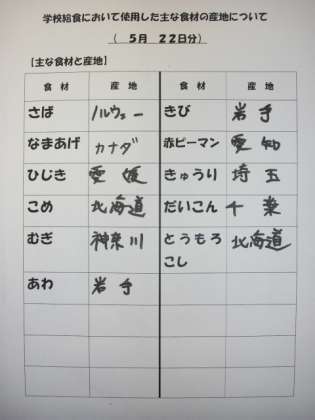 学校給食において使用した主な食材の産地について
（　５月　２２日分）
【主な食材と産地】
食材 産地 食材 産地
さば ノルウェー きび 岩手
なまあげ カナダ 赤ピーマン 愛知
ひじき 愛媛 きゅうり 埼玉
こめ 北海道 だいこん 千葉
むぎ 神奈川 とうもろ 北海道
こし
あわ 岩手